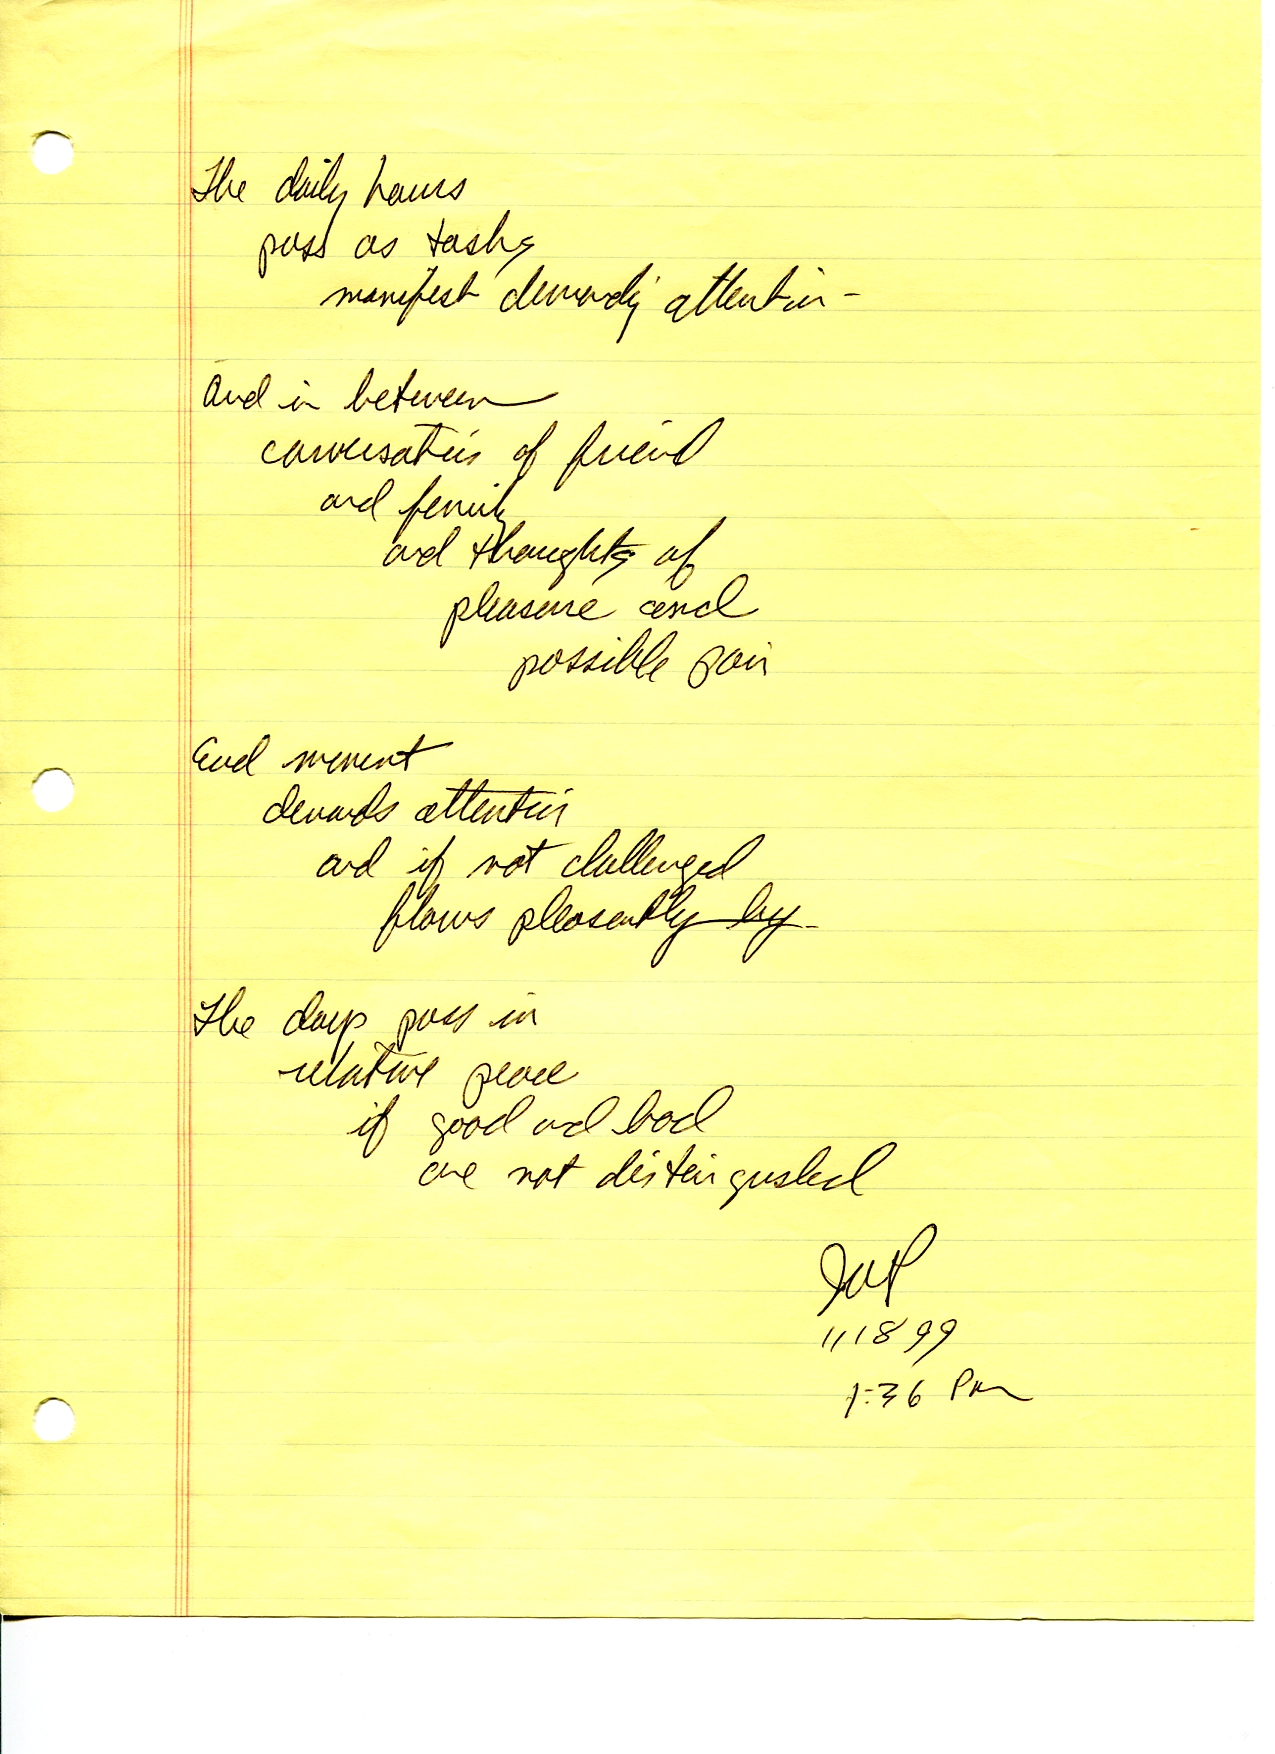 The daily hours
pass as tasks
manifest demanding attention -
And in between
conversations of friend
and family
and thoughts of
pleasure and
possible pain
Each moment
demands attention
and if not challenged
flows pleasantly by -
The days pass in
relative peace
if good and bad
are not distinguished
1:36 PM